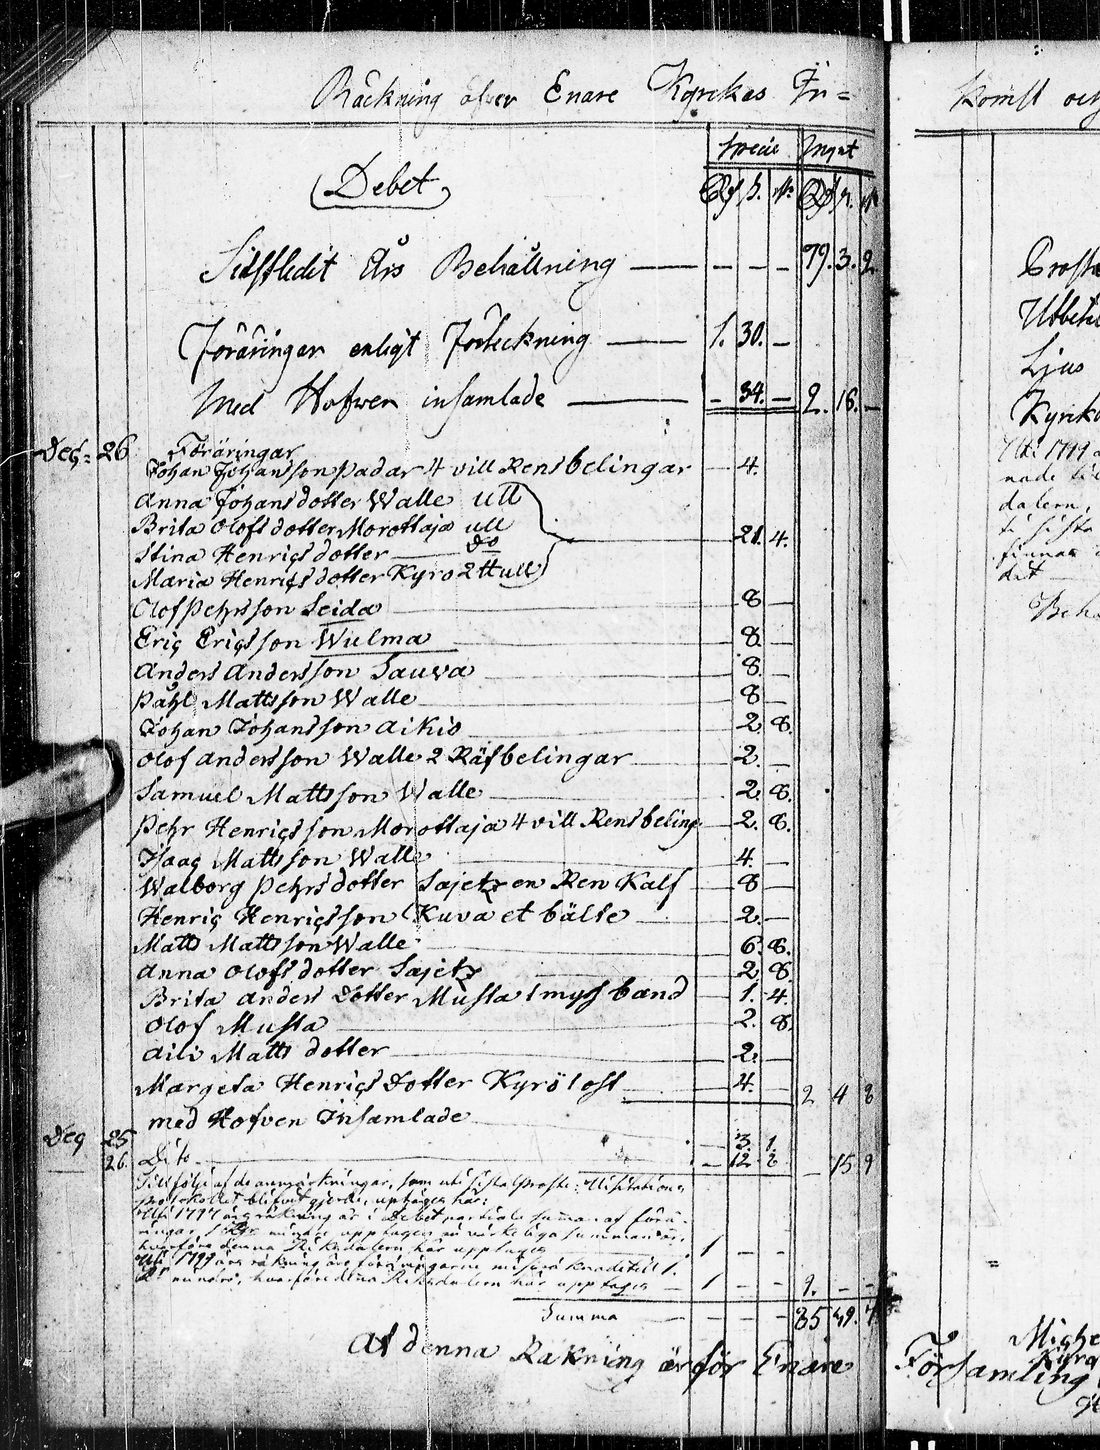 Räckning öfver Enare Kyrckas In=
Specie Inget
Debet
Rd s. r. Rd s. r.
Sidstledit Års Behållning — — — — 79. 3. 2.
Föräringar enligt Förteckning — 1. 30. —
Med Hofwen insamlade — — 34. — 2. 16. —
Dec= 26 Föräringar
Johan Johansson Padar 4 vill Rensbelingar — 4.
Anna Johansdotter Walle ull
Brita Olofsdotter Morottaja ull
Stina Henricsdotter — Do 21. 4.
Maria Henricsdotter Kyrö 2 ℔ ull
Olof Pehrsson Seida — 8 —
Eric Ericsson Wulma — 8. —
Anders Andersson Sauva — 8. —
Påhl Mattsson Walle — 8 —
Johan Johansson Aikio — 2. 8.
Olof Andersson Walle 2 Räfbelingar — 2. —
Samuel Mattsson Walle — 2. 8.
Pehr Henricsson Morottaja 4 vill Rensbeling — 2. 8.
Isaac Mattsson Walle — 4. —
Walborg Pehrsdotter Sajetz en Ren Kalf — 8 —
Henric Henricsson Kuva et bälte — 2. —
Matts Mattsson Walle — 6. 8.
Anna Olofsdotter Sajetz — 2 8.
Brita Anders Dotter Musta 1 myss band — 1. 4.
Olof Musta — 2. 8.
Aili Matts dotter — 2. —
Margeta Henrics Dotter Kyrö 1 ost — 4. — 2 4 8
med Hofven Insamlade
Dec 25 3. 1.
26. Dito — 12. 8 — 15 9
Til följe af de anmärkningar, som uti sista Prosts Visitations
protokollet blifvit gjorde, uptages här:
Uti 1797 års räkning är i Debet partiale summan af förä-
ringar 1 Rdr mindre upptagen än värkeliga summan är,
hvarföre denna Riksdalern här upptages — 1 — —
Uti 1799 års räkning äro föräringarne
mindre, hvarföre denna Riksdalern här upptages — 1 — — 2. — —
Summa — — — 85 49. 7
Af denna Räkning är för Enare
Komst och
Utbetal
Ljus
Kyrko
Uti 1799
nade
dalern,
finnas
dit
Beh
Miche
Kyrc
Församling